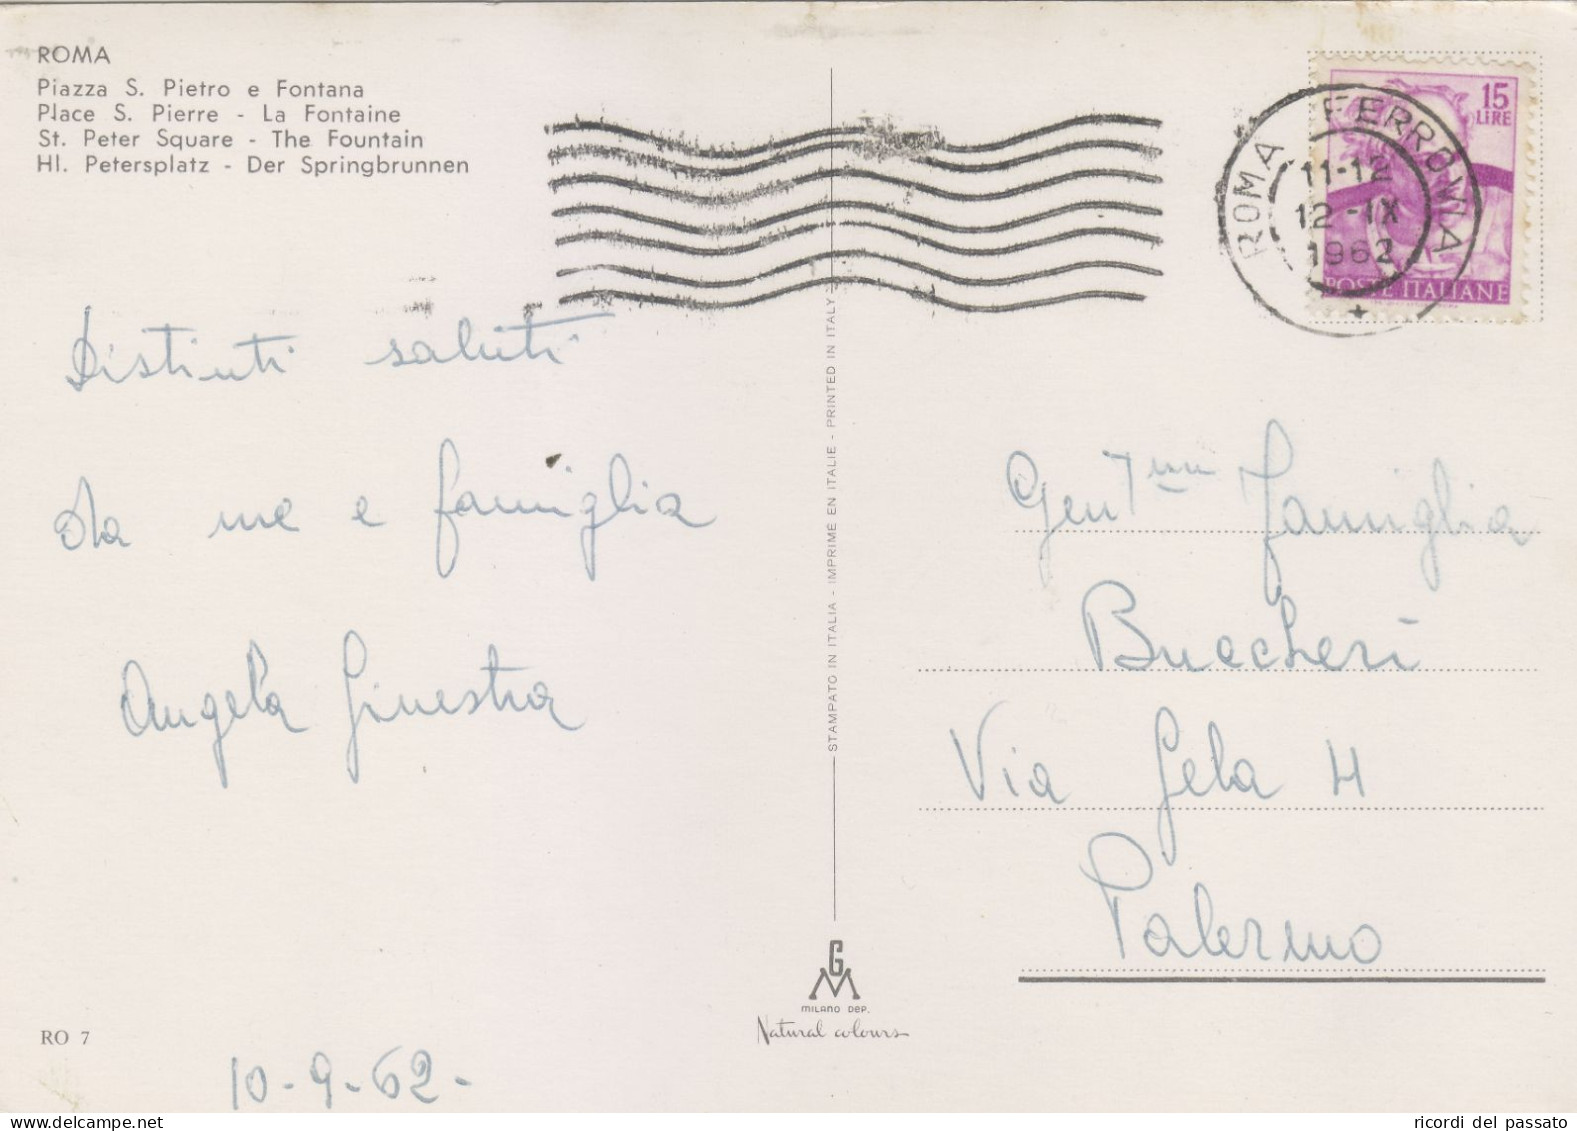 ROMA
Piazza S. Pietro e Fontana
Place S. Pierre - La Fontaine
St. Peter Square - The Fountain
Hl. Petersplatz - Der Springbrunnen
Distinti saluti
da me e famiglia
Angela Ginestra
10-9-62-
RO 7
STAMPATO IN ITALIA - IMPRIMÉ EN ITALIE - PRINTED IN ITALY
GM
MILANO DEP.
Natural colours
15
LIRE
POSTE ITALIANE
ROMA FERROVIA
11-12
12-IX
1962
Gent.ma famiglia
Buccheri
Via Gela 4
Palermo
ricordi del passato